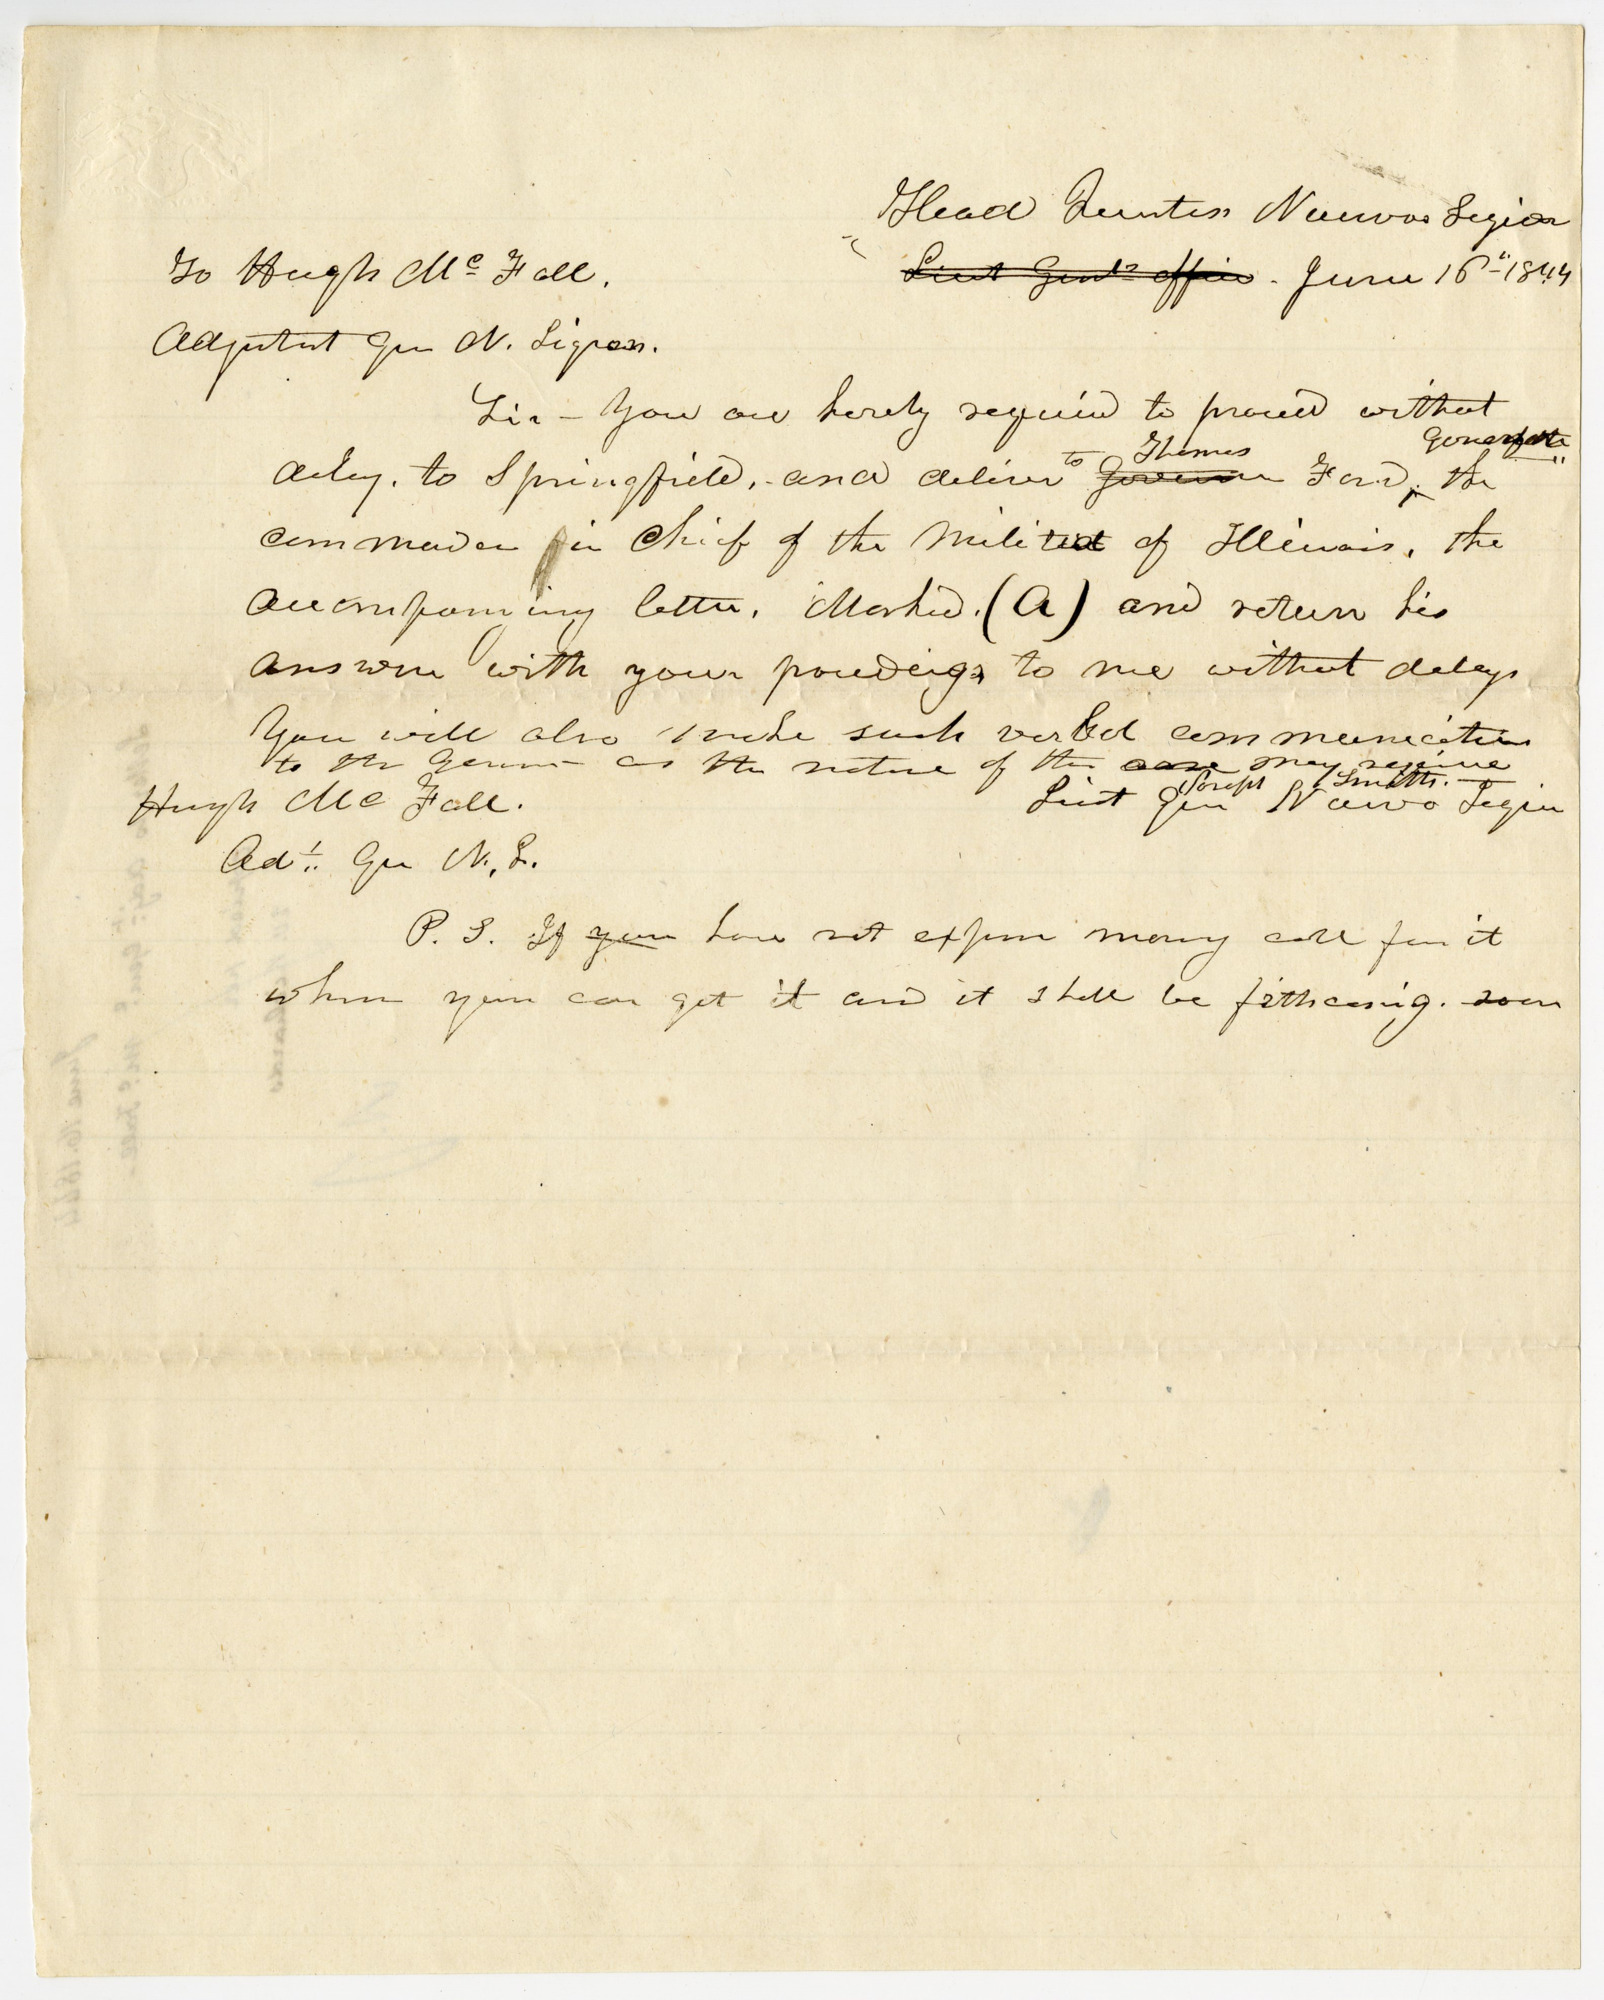 Head Quarters Nauvoo Legion
To Hugh Mc Fall.
Lieut Genls office. June 16th 1844
Adjutant Gen N. Ligion.
Sir - You are hereby required to proceed without
delay. to Springfield, and deliver to Governor Thomas Ford, Governor the
commander in Chief of the Militia of Illinois, the
accompanying letter, Marked. (A) and return his
answer with your proceedings to me without delay
You will also make such verbal communication
to the Governor as the nature of the case may require
Joseph Smith.
Hugh Mc Fall. Lieut Gen Nauvoo Legion
Adt. Gen N. L.
P. S. If you have not expense money call for it
where you can get it and it shall be forthcoming. soon